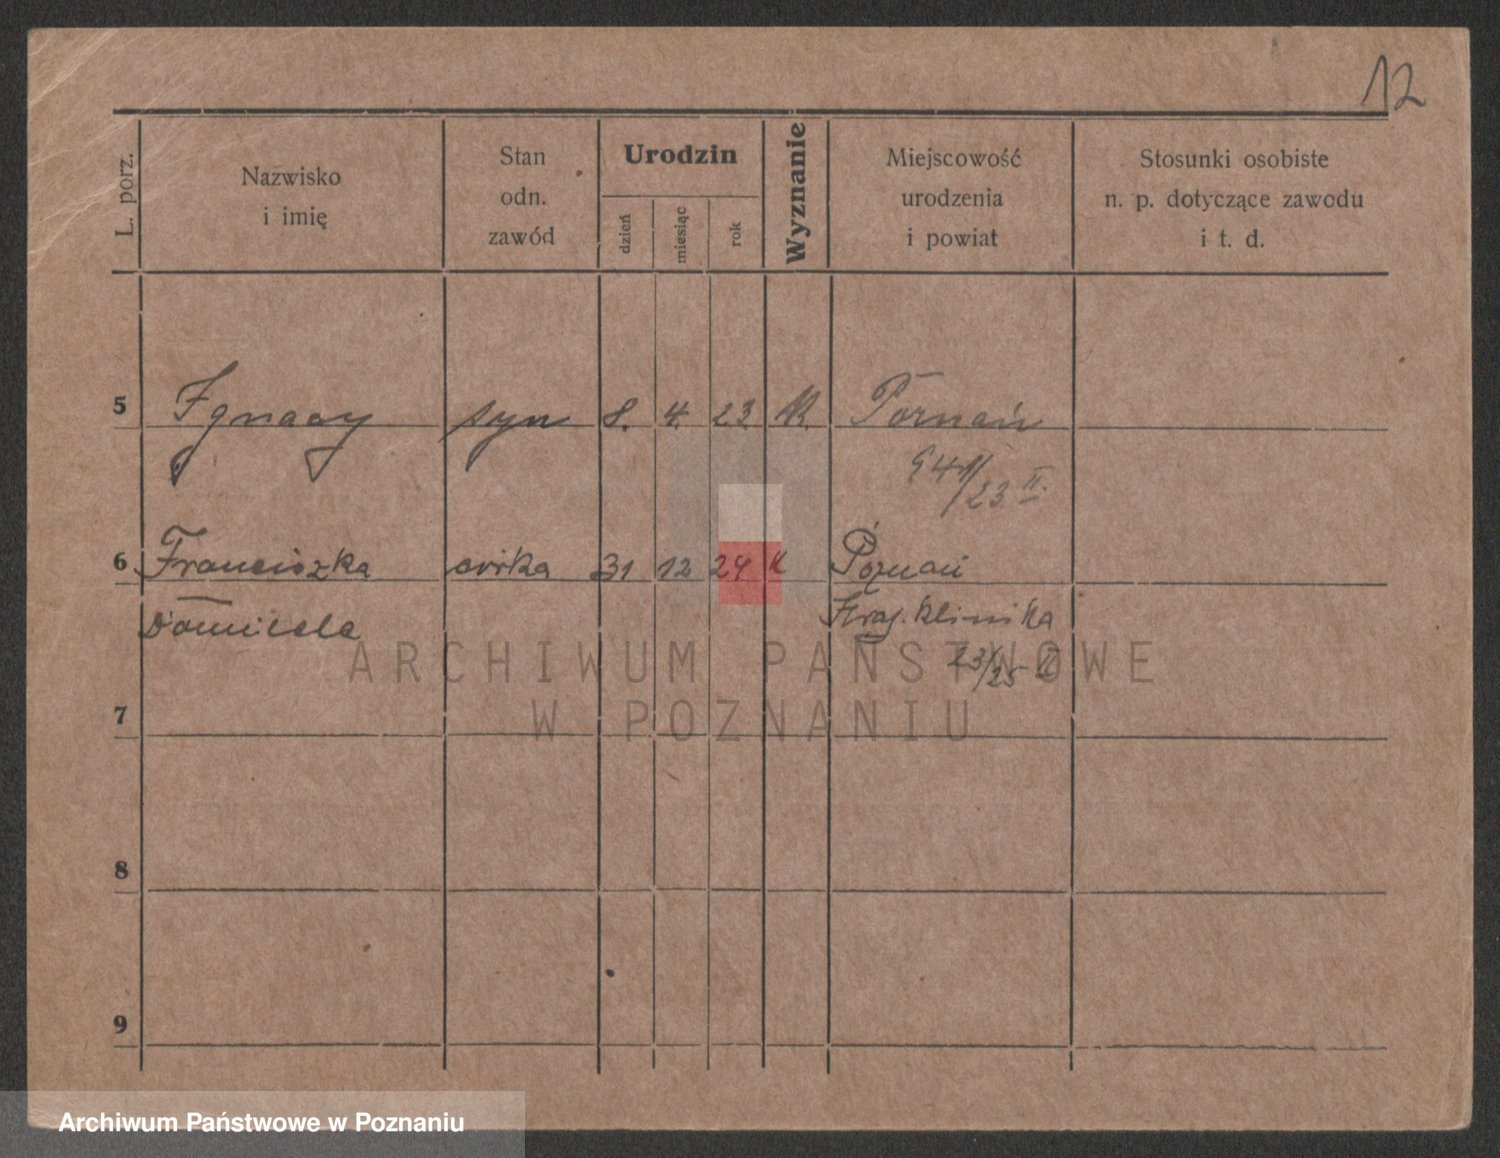 12
L. porz.
Nazwisko
i imię
Stan
odn.
zawód
Urodzin
dzień
miesiąc
rok
Wyznanie
Miejscowość
urodzenia
i powiat
Stosunki osobiste
n. p. dotyczące zawodu
i t. d.
5 Ignacy syn 8. 4. 23. K. Poznań
23 II.
6 Franciszka córka 31 12 24 K Poznań
Domicela Kraj. klinika
23/25 II
ARCHIWUM PAŃSTWOWE
W POZNANIU
7
8
9
Archiwum Państwowe w Poznaniu